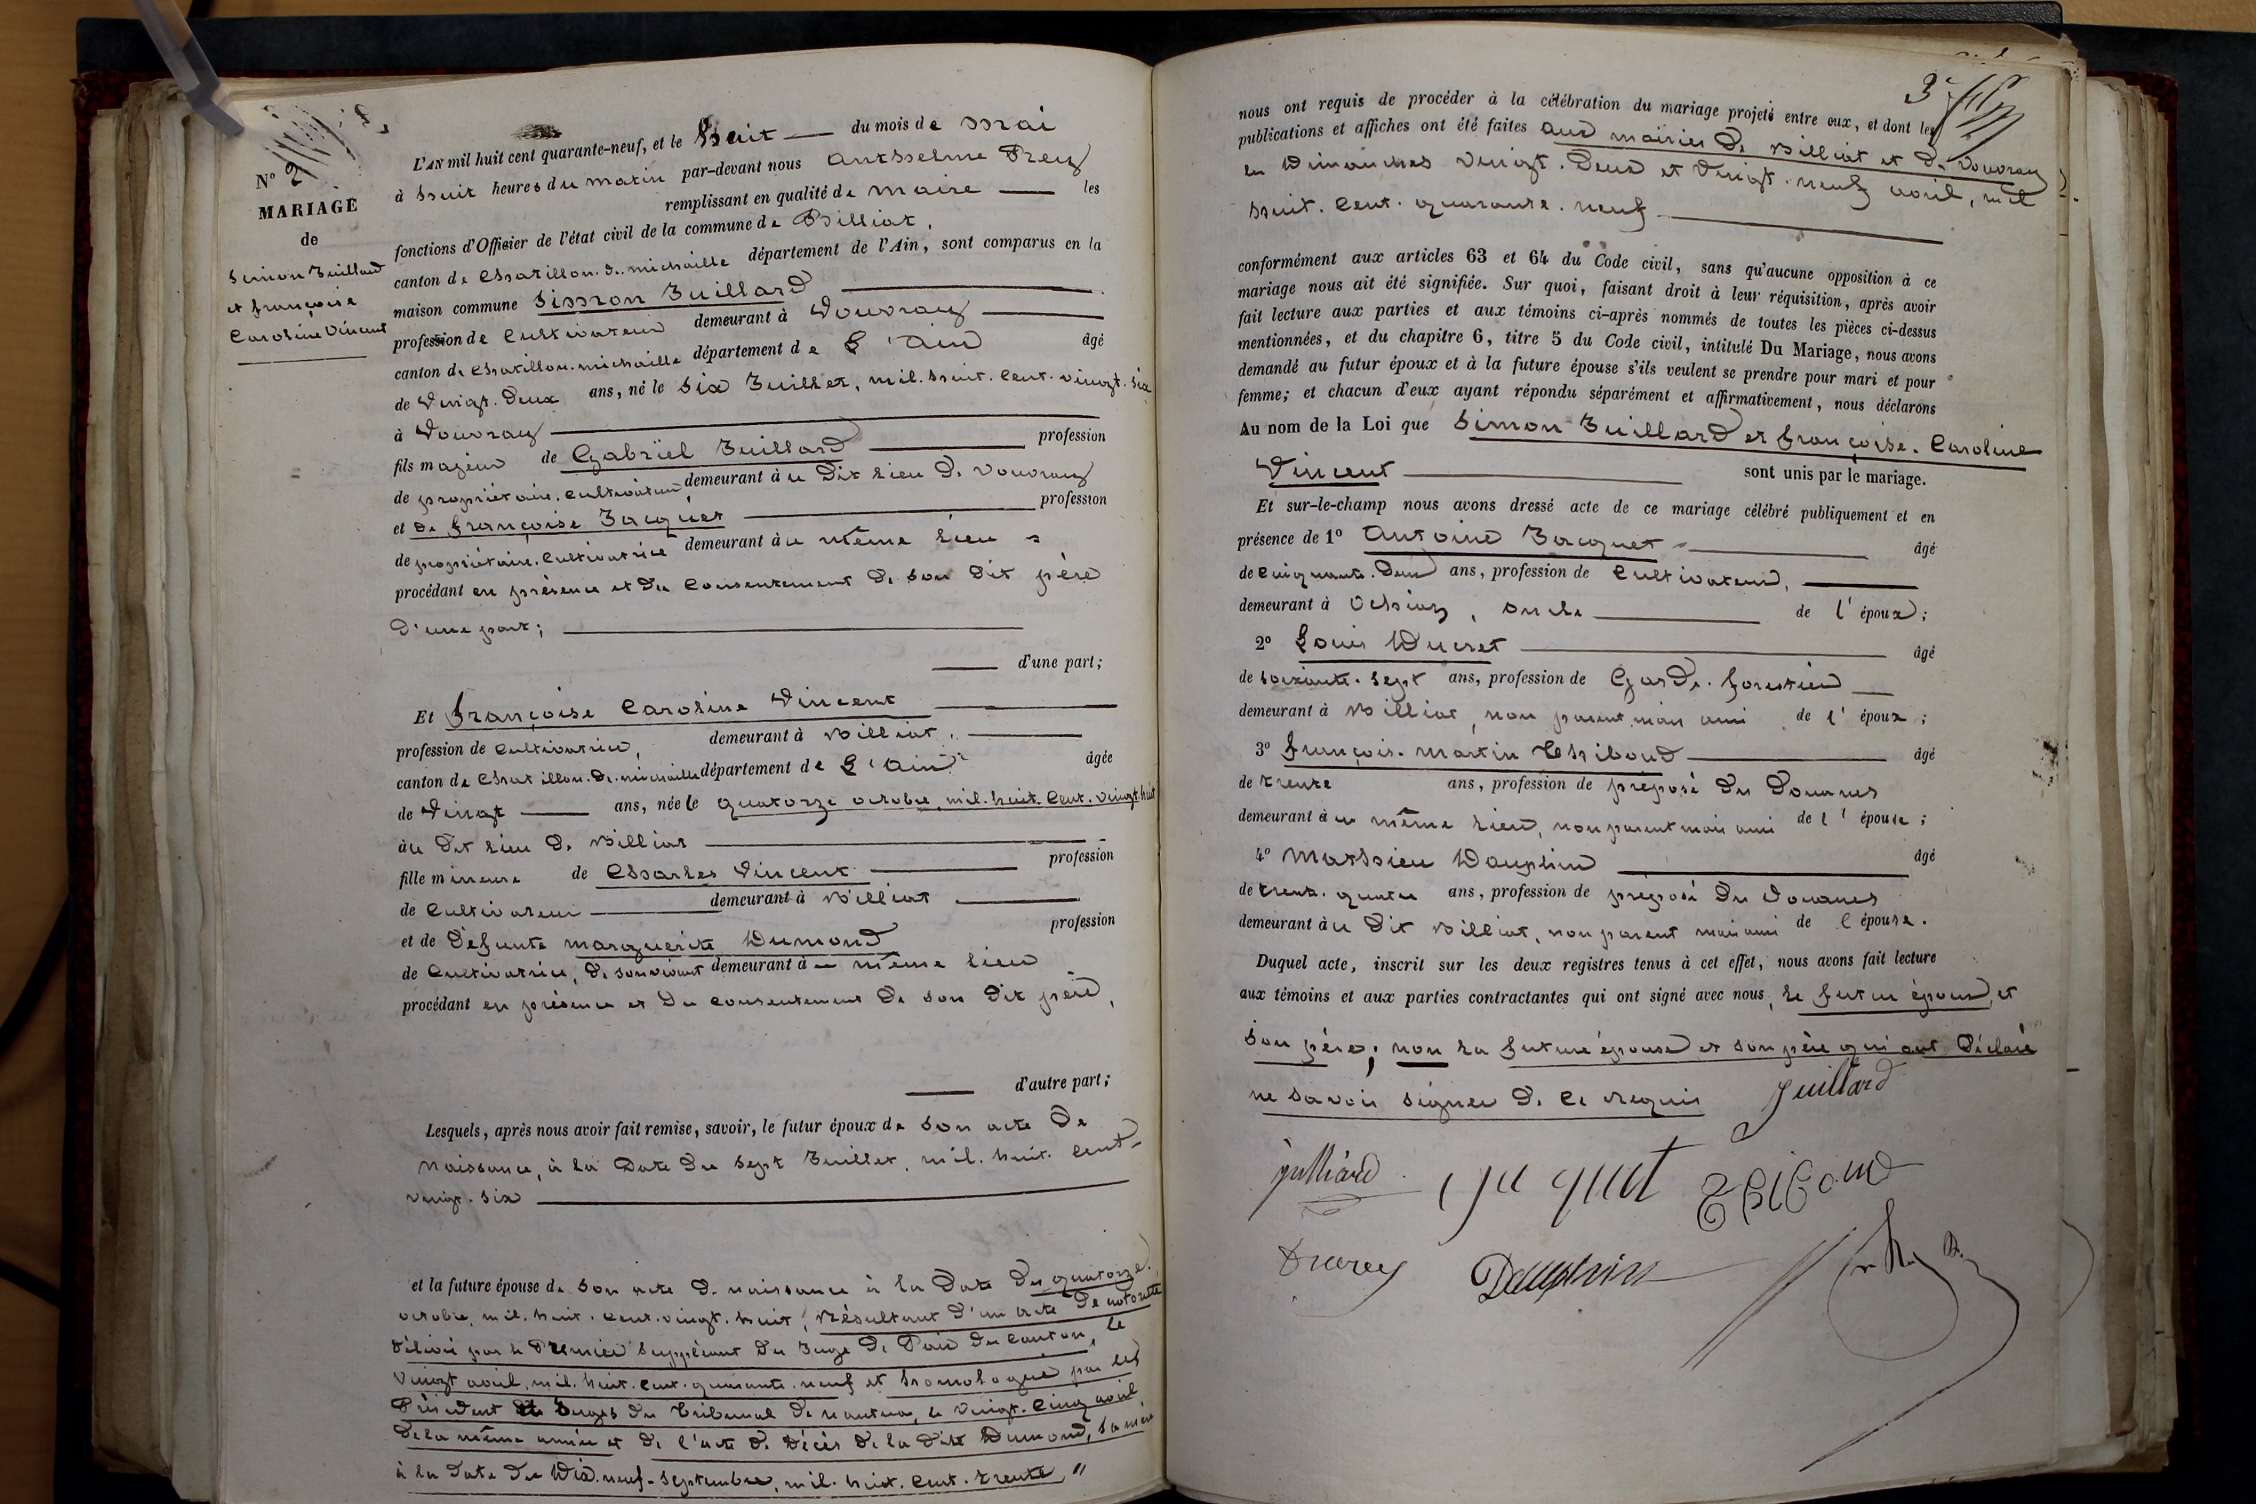 N° 2
MARIAGE
de
Simon Juillard
et françoise
Caroline Vincent
L'AN mil huit cent quarante-neuf, et le huit du mois de mai
à huit heures du matin par-devant nous Anthelme Frey
remplissant en qualité de maire les
fonctions d'Officier de l'état civil de la commune de Billiat,
canton de Chatillon. de. michaille département de l'Ain, sont comparus en la
maison commune Simon Juillard
profession de Cultivateur demeurant à Vouvray
canton de Chatillon. michaille département de L'Ain âgé
de vingt. deux ans, né le six Juillet, mil. huit. cent. vingt. six
à Vouvray
fils majeur de Gabriel Juillard profession
de propriétaire. cultivateur, demeurant àu dit lieu de Vouvray
et de françoise Jacquet profession
de propriétaire. cultivatrice demeurant àu même lieu
procédant en présence et du consentement de son dit père
d'une part;
d'une part;
Et françoise Caroline Vincent
profession de cultivatrice, demeurant à Billiat,
canton de Chatillon. de. michaille département de L'Ain âgée
de vingt ans, née le quatorze octobre, mil. huit. cent. vingt. huit
àu dit lieu de Billiat
fille mineure de Charles Vincent profession
de cultivateur demeurant à Billiat
et de défunte marguerite Dumond profession
de cultivatrice, de son vivant demeurant àu même lieu
procédant en présence et du consentement de son dit père,
d'autre part;
Lesquels, après nous avoir fait remise, savoir, le futur époux de son acte de
naissance, à la date du sept Juillet, mil. huit. cent
vingt. six
et la future épouse de son acte de naissance à la date du quatorze
octobre, mil. huit. cent. vingt. huit, résultant d'un acte de notoriété
délivré par le Premier suppléant du Juge de Paix du canton, le
vingt avril, mil. huit. cent. quarante. neuf et homologué par les
Président et Juges du Tribunal de Nantua, le vingt. cinq avril
de la même année et de l'acte de décès de la dite Dumond, sa mère
à la date du dix. neuf. septembre, mil. huit. cent. trente "
3
nous ont requis de procéder à la célébration du mariage projeté entre eux, et dont les
publications et affiches ont été faites aux mairies de Billiat et de Vouvray
les dimanches vingt. deux et vingt. neuf avril, mil
huit. cent. quarante. neuf
conformément aux articles 63 et 64 du Code civil, sans qu'aucune opposition à ce
mariage nous ait été signifiée. Sur quoi, faisant droit à leur réquisition, après avoir
fait lecture aux parties et aux témoins ci-après nommés de toutes les pièces ci-dessus
mentionnées, et du chapitre 6, titre 5 du Code civil, intitulé Du Mariage, nous avons
demandé au futur époux et à la future épouse s'ils veulent se prendre pour mari et pour
femme; et chacun d'eux ayant répondu séparément et affirmativement, nous déclarons
Au nom de la Loi que Simon Juillard et françoise. Caroline
Vincent sont unis par le mariage.
Et sur-le-champ nous avons dressé acte de ce mariage célébré publiquement et en
présence de 1° Antoine Jacquet âgé
de cinquante. deux ans, profession de Cultivateur,
demeurant à Ochiaz, oncle de l'époux;
2° Louis Ducret âgé
de soixante. sept ans, profession de Garde. forestier
demeurant à Billiat, non parent mais ami de l'époux;
3° François. martin Thiboud âgé
de trente ans, profession de préposé des Douanes
demeurant àu même lieu, non parent mais ami de l'épouse;
4° Mathieu Dauphin âgé
de trente. quatre ans, profession de préposé des Douanes
demeurant àu dit Billiat, non parent mais ami de l'épouse.
Duquel acte, inscrit sur les deux registres tenus à cet effet, nous avons fait lecture
aux témoins et aux parties contractantes qui ont signé avec nous, le futur époux, et
son père; non la future épouse et son père qui ont déclaré
ne savoir signer de ce requis Juillard
Julliard Jacquet Thiboud
Ducrey Dauphin